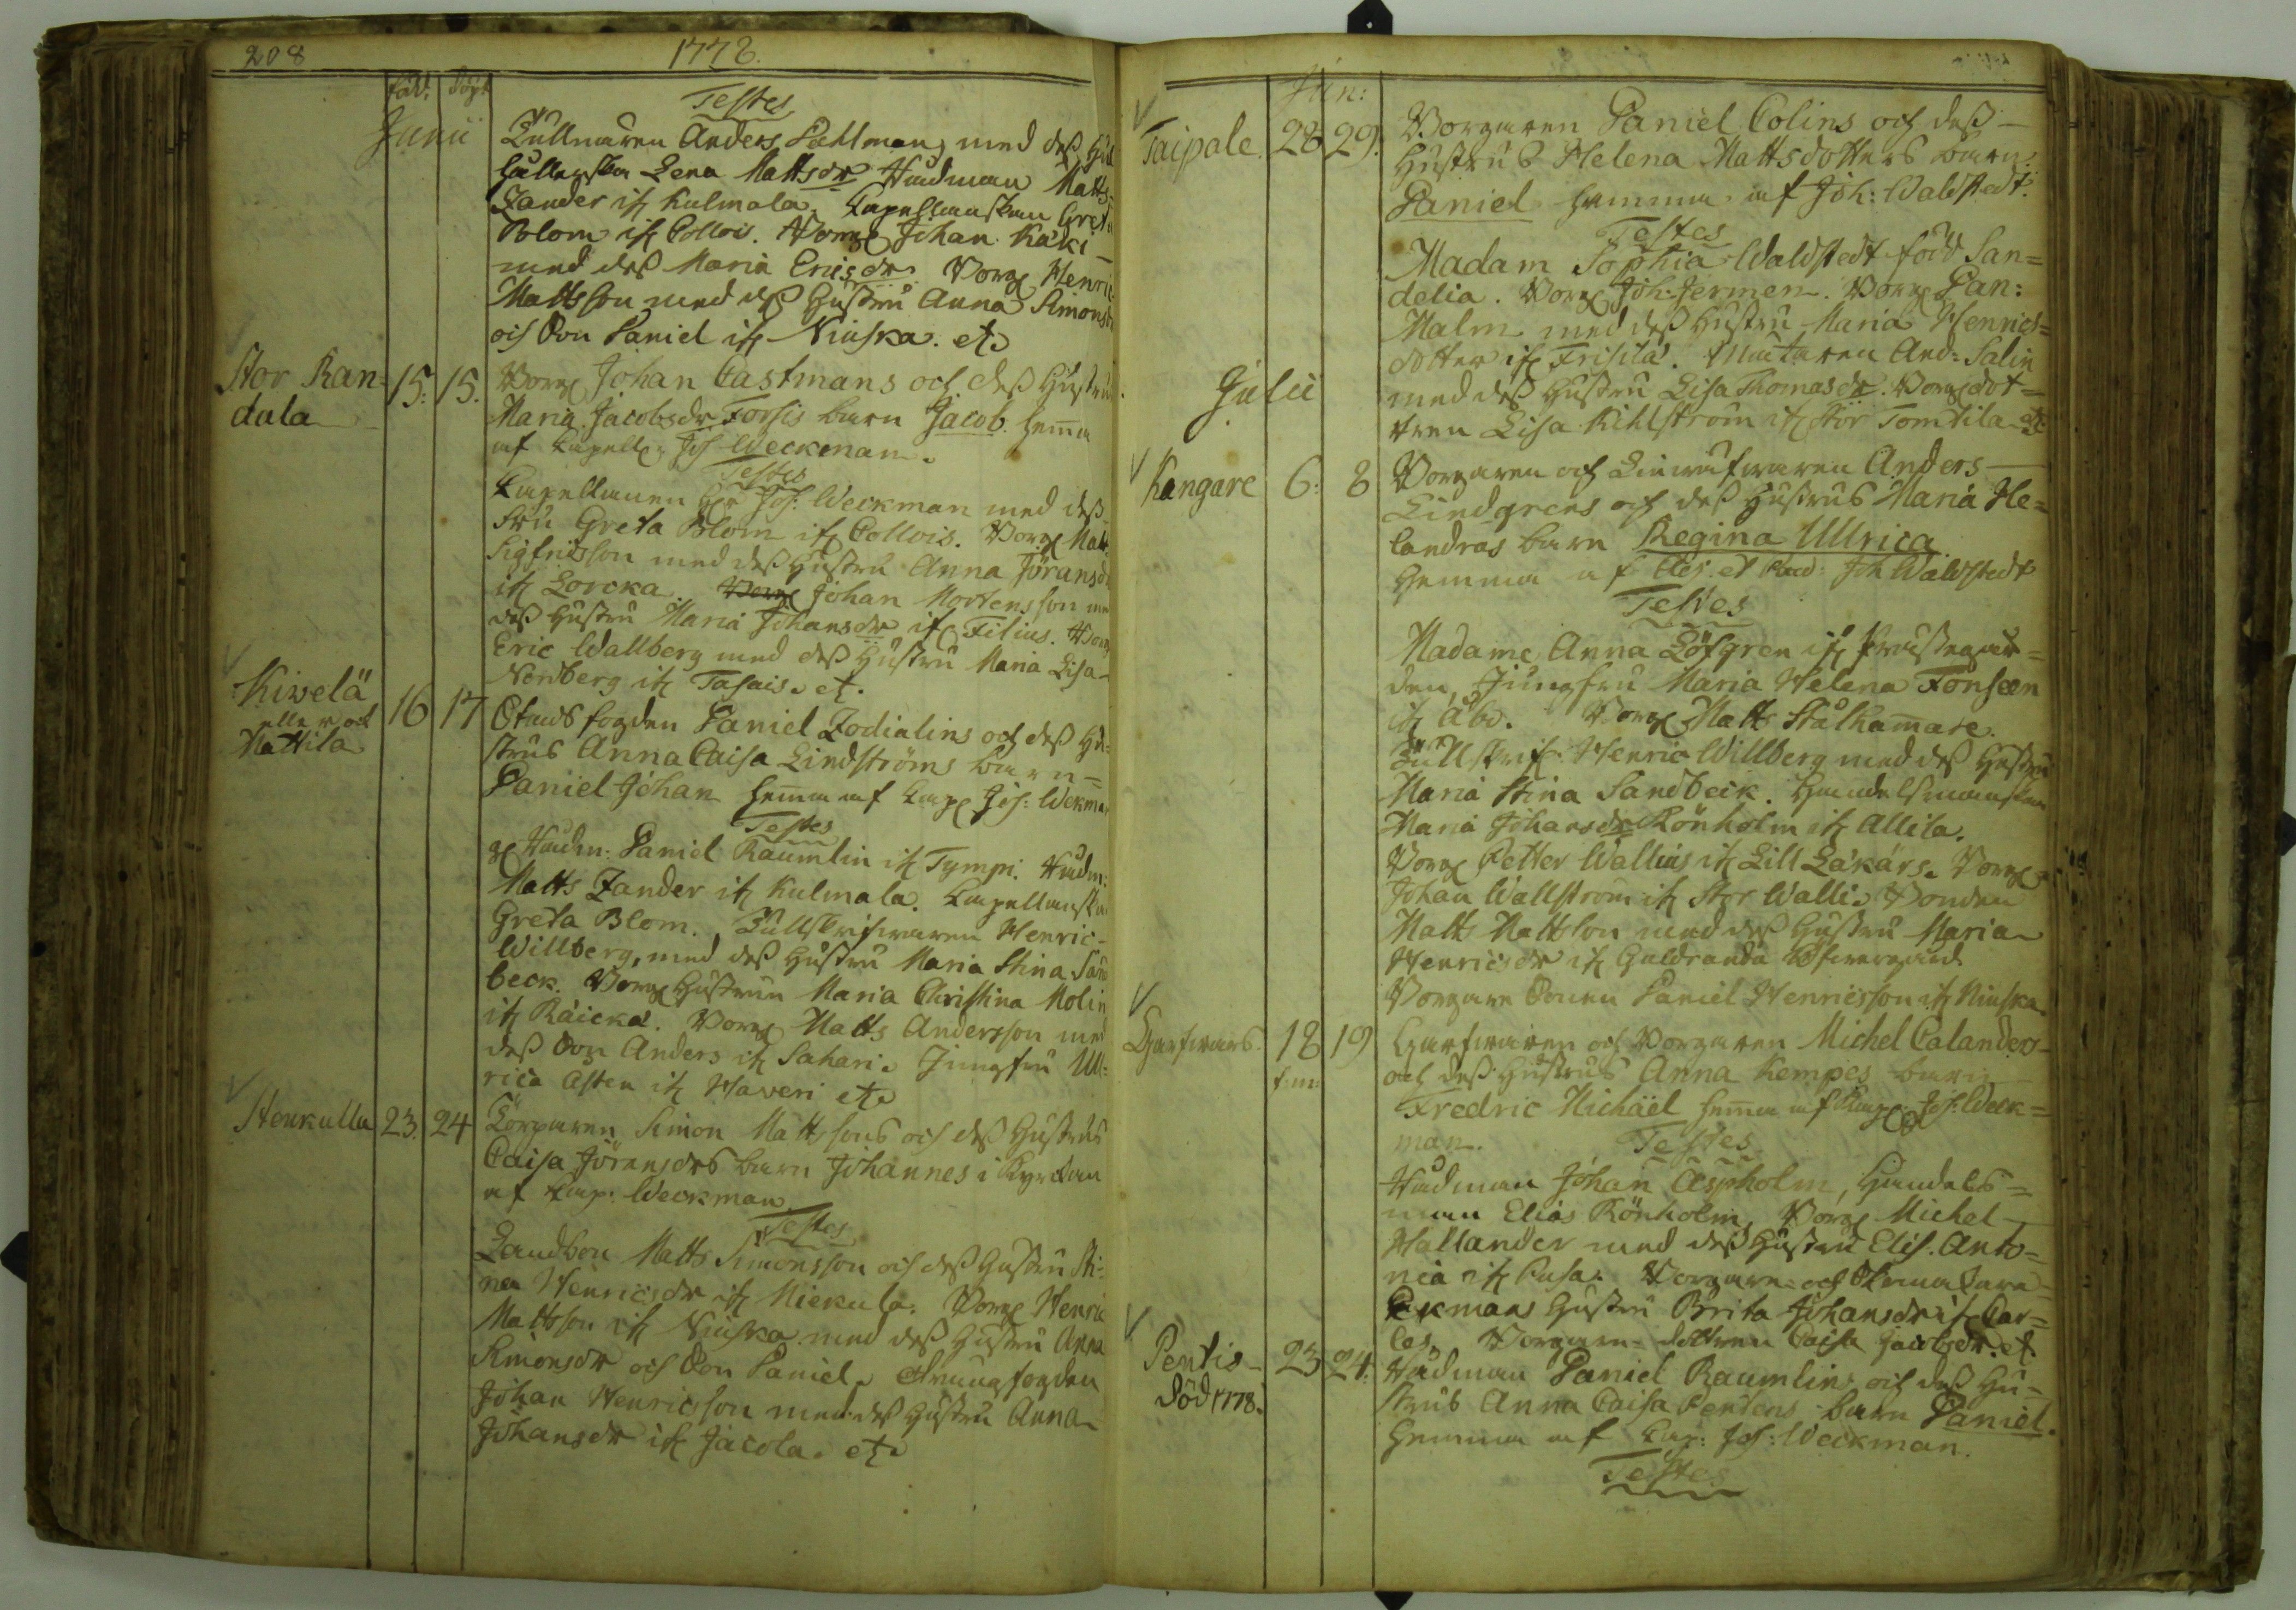 208
1778.
född: döpt
Junii
Testes
Tullnären Anders Pahlman, med dess Hus
hållerska Lena Mattsdr Rådman Matts
Zander ifr Kulmala. Capellanskan Greta
Blom ifr Collois. Borg Johan Käki
med dess Maria Ericsdr. Borg Henric
Mattsson med dess Hustru Anna Simonsdr
och Son Daniel ifr Niuska. etc
Stor Ran=
dala
15. 15.
Borg Johan Castmans och dess Hustru
Maria Jacobsdr Forsis barn Jacob. hema
af Capell. Jos Weckman.
Testes
Capellanen Hr Jos: Weckman med dess
Fru Greta Blom ifr Collois. Borg Matt
Sigfridsson med dess Hustru Anna Jöransdr
ifr Lorcka. Borg Johan Mortensson med
dess Hustru Maria Johansdr ifr Filius. Borg
Eric Wallberg med dess Hustru Maria Lisa
Nordberg ifr Tasais. etc.
Kiwelä
eller och
Mattila
16 17
Stads fogden Daniel Zodialins och dess Hu=
strus Anna Caisa Lindströms barn=
Daniel Johan hema af Cap Jos: Wekman
Testes
Rådm: Daniel Raumlin ifr Tympi. Rådm:
Matts Zander ifr Kulmala. Capellanskan
Greta Blom. Tullskrifwaren Henric
Willberg, med dess Hustru Maria Stina Sand
beck. Borg Hustrun Maria Christina Molin
ifr Räickä. Borg Matts Andersson med
dess Son Anders ifr Sahari. Jungfru Ul=
rica Asten ifr Haveri etc
Stenkulla 23. 24
Torparen Simon Mattssons och dess Hustrus
Caisa Jöransdrs barn Johannes i Kyrckan
af Cap: Weckman
Testes
Landbon Matts Simonsson och dess Hustru Sti=
na Henricsdr ifr Miekula. Borg Henric
Mattsson ifr Niuska med dess Hustru Anna
Simonsdr och Son Daniel.
Johan Henricsson med dess Hustru Anna
Johansdr ifr Jacola. etc
Jun:
Taipale. 28 29.
Borgaren Daniel Colins och dess
Hustrus Helena Mattsdotters barn
Daniel hemma af Joh: Waldstedt.
Testes
Madam Sophia Waldstedt född San=
delia. Borg Joh: Jermen. Borg Dan:
Malm med dess Hustru Maria Henrics=
dotter ifr Frisila. Muraren And: Salin
med dess Hustru Lisa Thomasdr. Borg dot=
tren Lisa Kihlström ifr Stor Tomtila etc
Julii
Kangare 6. 8
Borgaren och Linwäfwaren Anders
Lindgrens och dess Hustrus Maria He=
landras barn Regina Ullrica
Hemma af Joh Waldstedt
Testes
Madame Anna Löfgren ifr Prästegår=
den, Jungfru Maria Helena Fonseen
ifr Åbo. Borg Matts Stålhamare.
Tullskrif: Henric Willberg med dess Hustru
Maria Stina Sandbeck. Handelsmanskan
Maria Johansdr Rönholm ifr Allila.
Borg Petter Wallius ifr Lill Läkärs. Borg
Johan Wallström ifr Stor Walli. Bonden
Matts Mattsson med dess Hustru Maria
Henricsdr ifr Galdranda Öfwergård
Borgare Sonen Daniel Henricsson ifr Niuska.
Garfwars. 18 19
f.m.
Garfwaren och Borgaren Michel Calanders
och dess Hustrus Anna Kempes barn
Fredric Michäel hema af Cap Jos: Weck=
man.
Testes
Rådman Johan Aspholm, Handels=
man Elias Rönholm, Borg Michel
Hallander med dess Hustru Elis. Anto=
nia ifr Pusa. Borgare och
Ekmans Hustru Brita Johansdr ifr Car=
les. Borgare dottren Caisa Jacobsdr. etc
Pentis 23 24.
död 1778.
Rådman Daniel Raumlins och dess Hu=
strus Anna Caisa Pentens barn Daniel.
Hemma af Cap: Jos: Weckman.
Testes